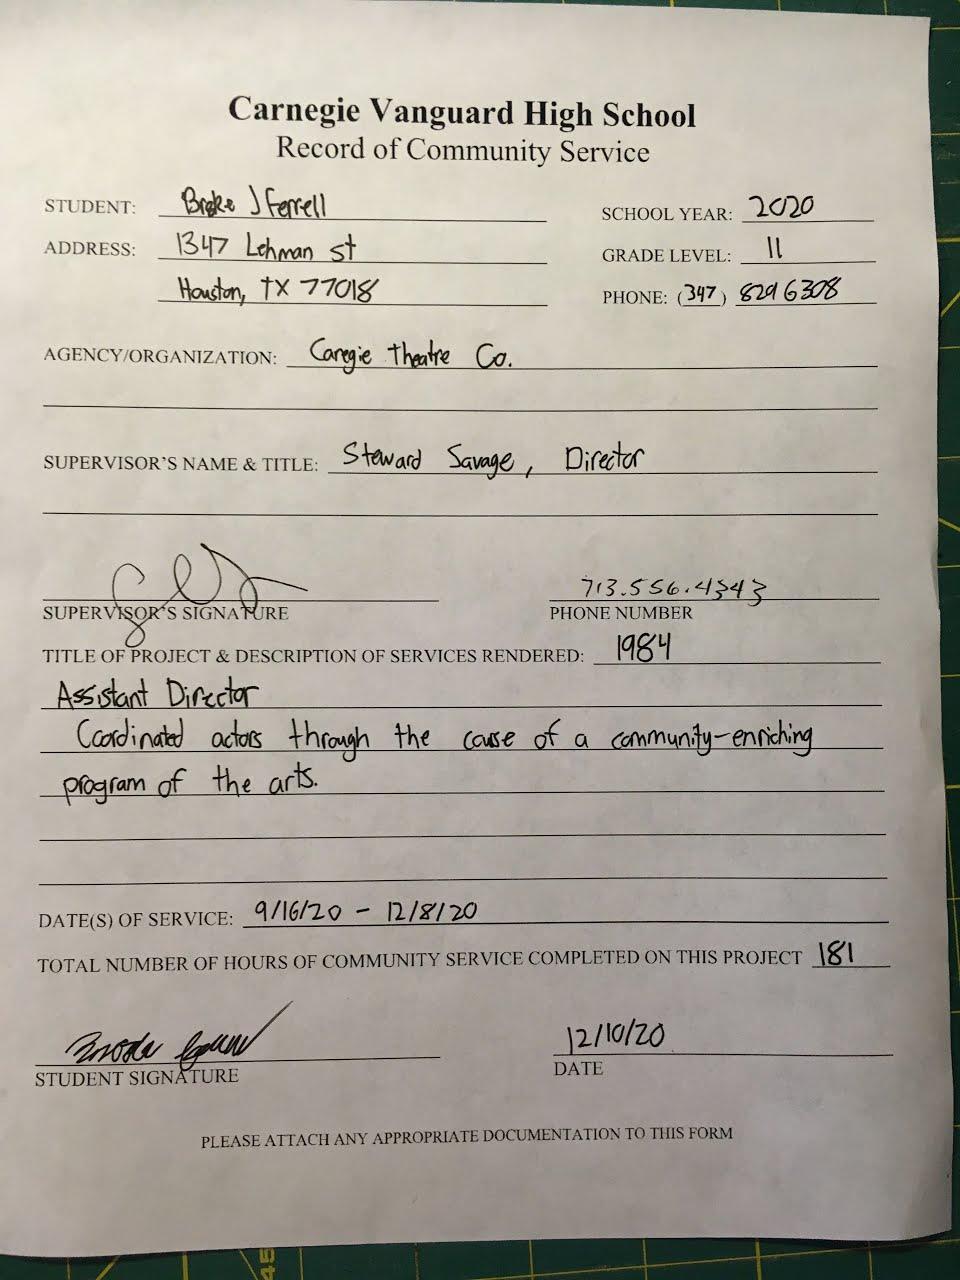 Carnegie Vanguard High School
Record of Community Service
STUDENT: Broke J Ferrell
SCHOOL YEAR: 2020
ADDRESS: 1347 Lehman st
GRADE LEVEL: 11
Houston, TX 77018
PHONE: (347) 829 6308
AGENCY/ORGANIZATION: Caregie Theatre Co.
SUPERVISOR'S NAME & TITLE: Steward Savage, Director
713.556.4343
SUPERVISOR'S SIGNATURE
PHONE NUMBER
TITLE OF PROJECT & DESCRIPTION OF SERVICES RENDERED: 1984
Assistant Director
Coordinated actors through the cause of a community-enriching
program of the arts.
DATE(S) OF SERVICE: 9/16/20 - 12/8/20
TOTAL NUMBER OF HOURS OF COMMUNITY SERVICE COMPLETED ON THIS PROJECT 181
12/10/20
STUDENT SIGNATURE
DATE
PLEASE ATTACH ANY APPROPRIATE DOCUMENTATION TO THIS FORM
45